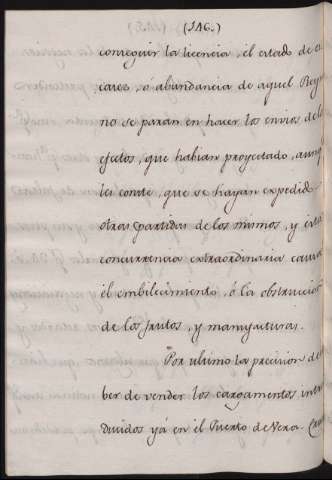 (146.)
conseguir la licencia, el estado de es
cases, ó abundancia de aquel Rey
no se paran en hacer los envios de l
efectos, que habian proyectado, aunq
les conste, que se hayan expedid
otras partidas de los mismos, y esta
concurrencia extraordinaria causa
el embilecimiento, ó la obstruccio
de los frutos, y manufacturas.
Por ultimo la precision de
ber de vender los cargamentos intro
ducidos yá en el Puerto de Vera